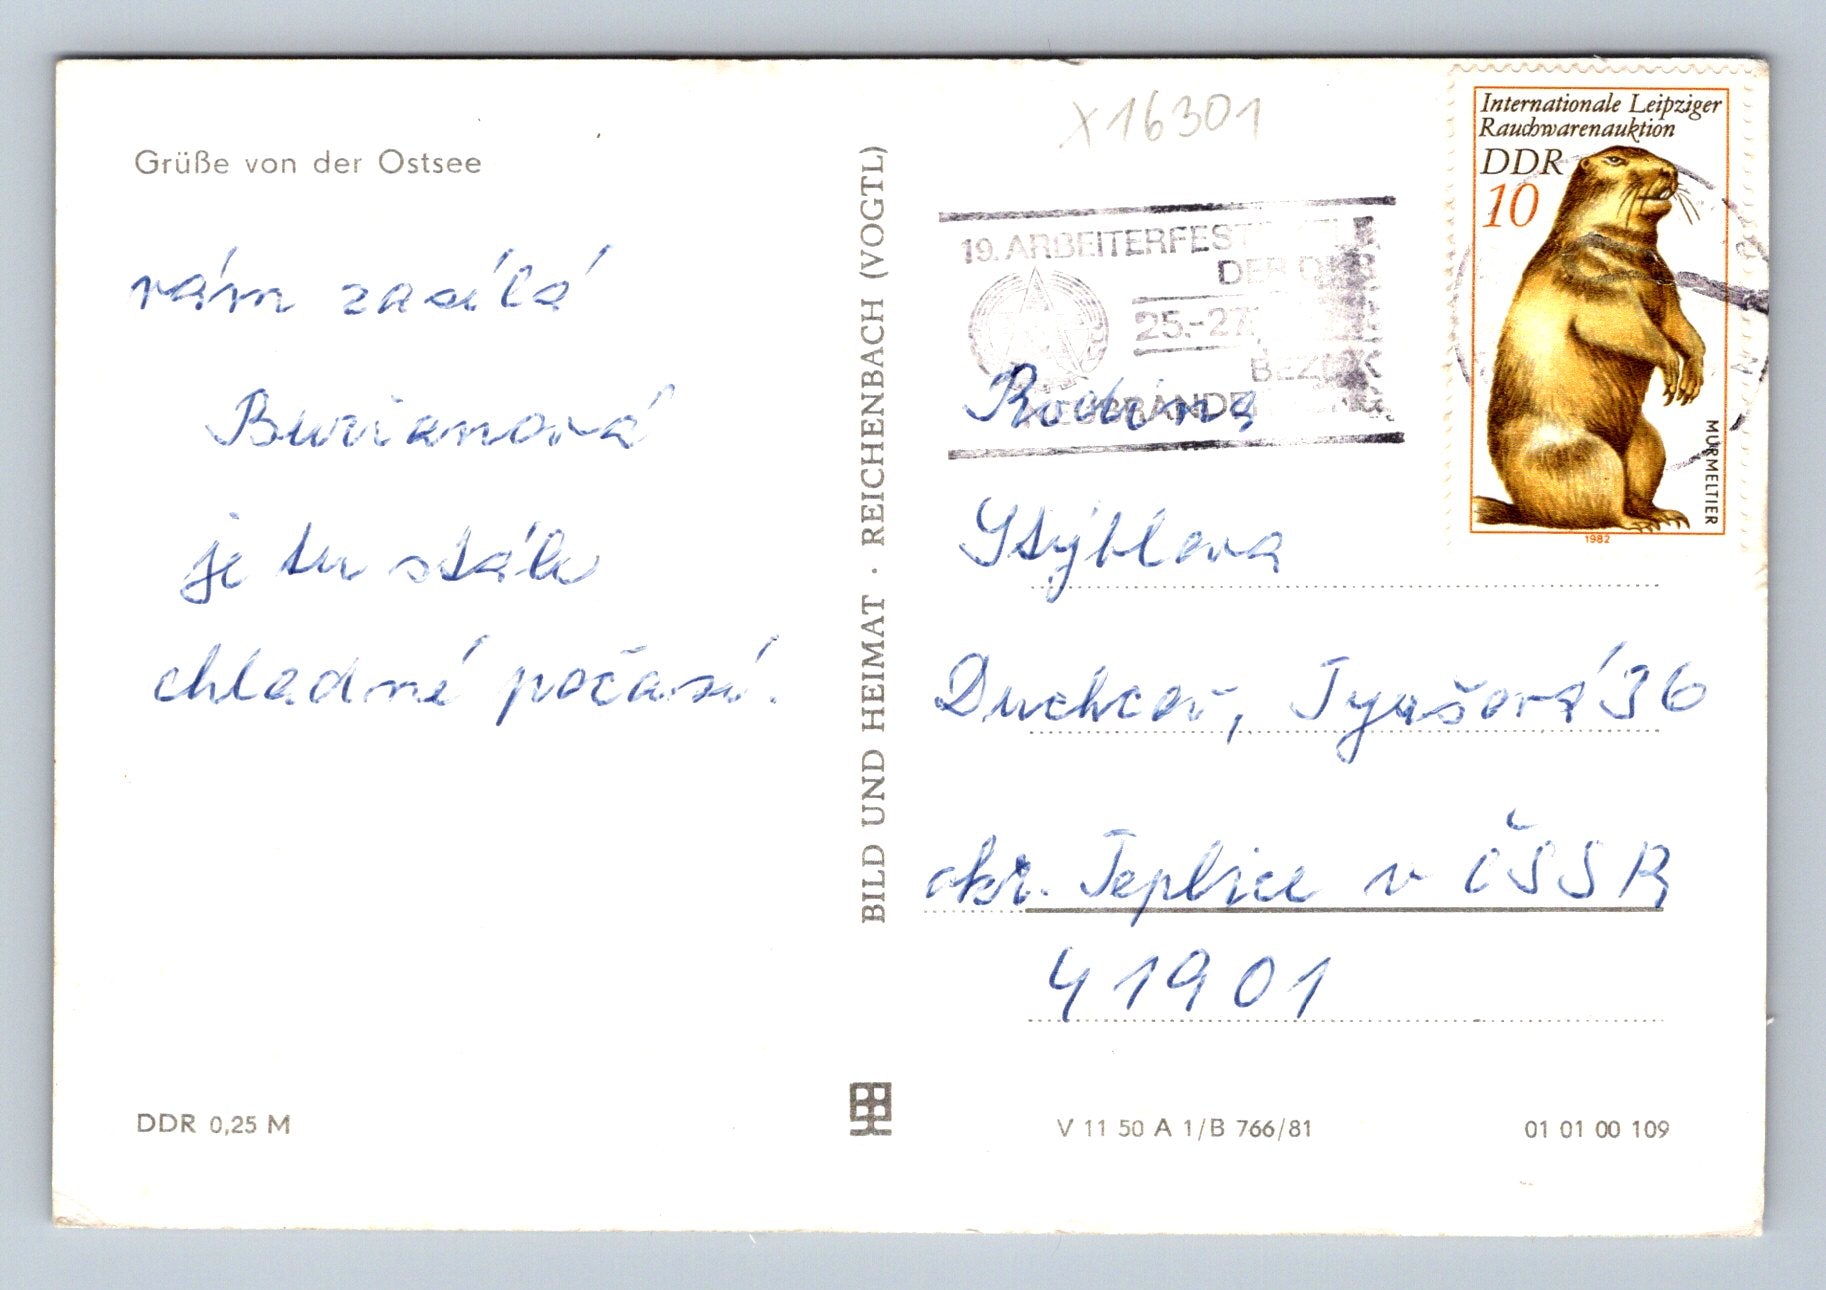 Grüße von der Ostsee
vám zasílá
Burianová
je tu stále
chladné počasí.
DDR 0,25 M
BILD UND HEIMAT · REICHENBACH (VOGTL)
X16301
19. ARBEITERFESTSPIELE
DER DDR
25.-27.
BEZIRK
NEUBRANDENBURG
Internationale Leipziger
Rauchwarenauktion
DDR
10
MURMELTIER
1982
Rodina
Stýblova
Duchcov, Tyršová 36
okr. Teplice v ČSSR
41901
V 11 50 A 1/B 766/81
01 01 00 109